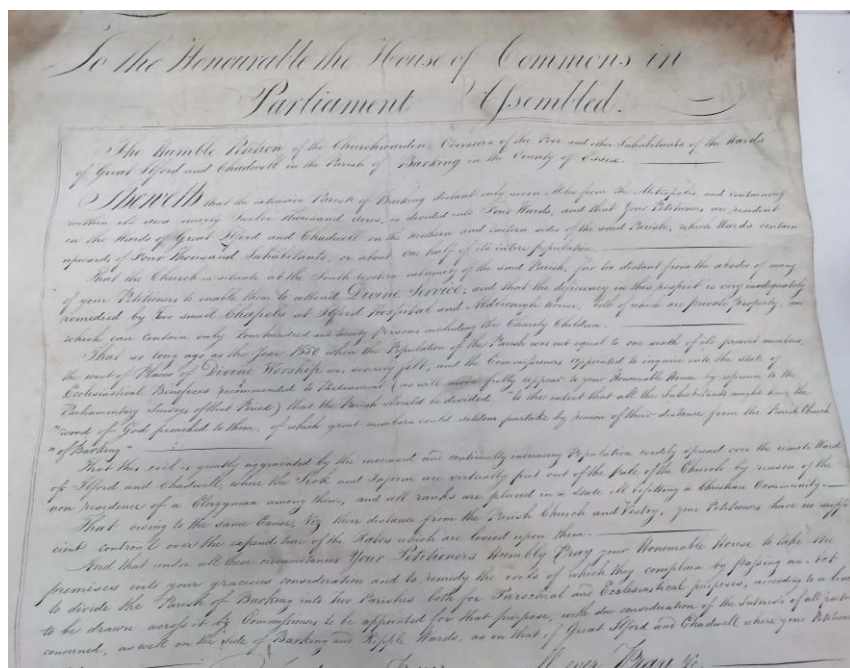 To the Honourable the House of Commons in
Parliament Assembled.
The Humble Petition of the Churchwarden Overseers of the Poor and other Inhabitants of the Wards
of Great Ilford and Chadwell in the Parish of Barking in the County of Essex.
Sheweth that the extensive Parish of Barking distant only seven Miles from the Metropolis, and containing
within its area nearly Twelve thousand Acres, is divided into Four Wards, and that Your Petitioners are resident
in the Wards of Great Ilford and Chadwell on the northern and eastern sides of the said Parish, which Wards contain
upwards of Four Thousand Inhabitants, or about one half of its intire population.
That the Church is situate at the South western extremity of the said Parish, far too distant from the abodes of many
of your Petitioners to enable them to attend Divine Service; and that the deficiency in this respect is very inadequately
remedied by Two small Chapels at Ilford Hospital and Aldborough House, both of which are private property, and
which can contain only Four hundred and twenty Persons including the Charity Children.
That so long ago as the Year 1650 when the Population of the Parish was not equal to one sixth of its present numbers,
the want of Places of Divine Worship was severely felt, and the Commissioners appointed to inquire into the state of
Ecclesiastical Benefices recommended to Parliament (as will more fully appear to your Honorable House by reference to the
Parliamentary Surveys of that Period) that the Parish should be divided "to the intent that all the Inhabitants might have the
"word of God preached to them, of which great numbers could seldom partake by reason of their distance from the Parish Church
"of Barking"
That this evil is greatly aggravated by the increased and continually increasing Population widely spread over the remote Wards
of Ilford and Chadwell, where the Sick and Infirm are virtually put out of the pale of the Church by reason of the
non residence of a Clergyman among them, and all ranks are placed in a State ill befitting a Christian Community.
That owing to the same Cause, Viz their distance from the Parish Church and Vestry, your Petitioners have insuffi
cient controul over the expenditure of the Rates which are levied upon them.
And that under all these circumstances Your Petitioners Humbly Pray your Honorable House to take the
premises into your gracious consideration and to remedy the evils of which they complain by passing an Act
to divide the Parish of Barking into Two Parishes both for Parochial and Ecclesiastical purposes, according to a line
to be drawn across it by Commissioners to be appointed for that purpose, with due consideration of the Interests of all parties
concerned, as well on the side of Barking and Ripple Wards, as on that of Great Ilford and Chadwell where your Petitioners
ever Pray &c.